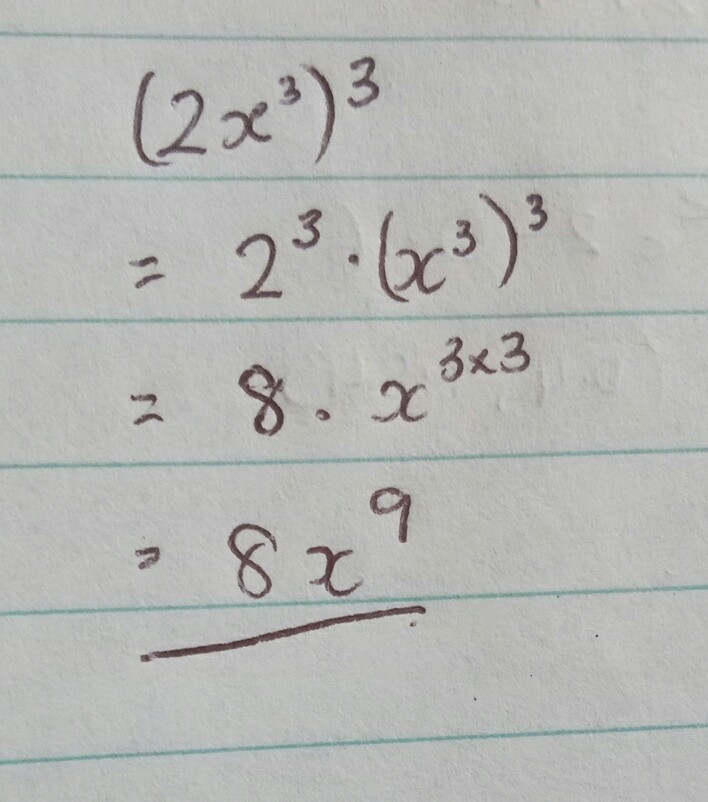 (2x³)³
= 2³·(x³)³
= 8·x³ˣ³
= 8x⁹